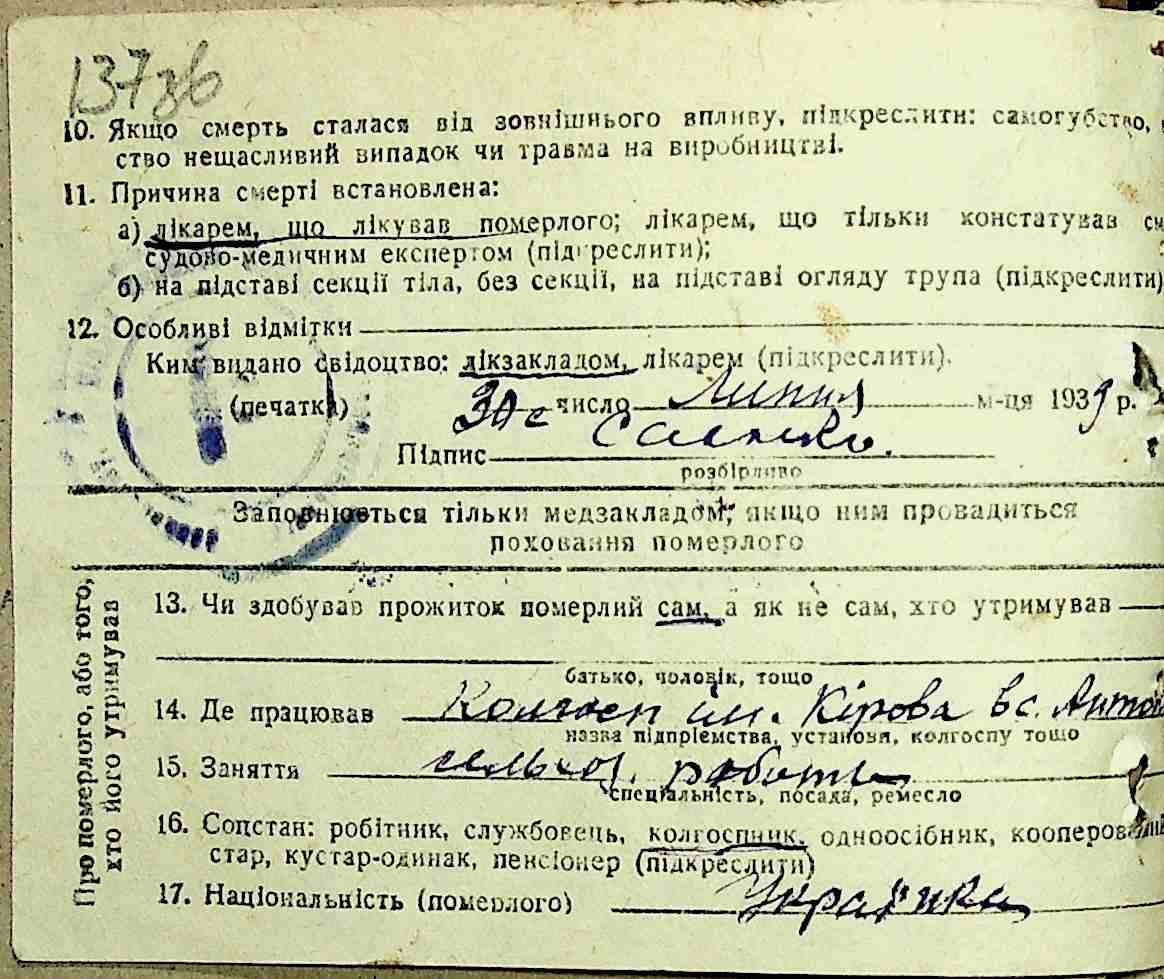 137зв
10. Якщо смерть сталася від зовнішнього впливу, підкреслити: самогубство,
ство нещасливий випадок чи травма на виробництві.
11. Причина смерті встановлена:
а) лікарем, що лікував померлого; лікарем, що тільки констатував см
судово-медичним експертом (підкреслити);
б) на підставі секції тіла, без секції, на підставі огляду трупа (підкреслити)
12. Особливі відмітки
Ким видано свідоцтво: лікзакладом, лікарем (підкреслити).
(печатка) 30 число Липня м-ця 1939 р.
Підпис
розбірливо
Заповнюється тільки медзакладом, якщо ним провадиться
поховання померлого
Про померлого, або того,
хто його утримував
13. Чи здобував прожиток померлий сам, а як не сам, хто утримував
батько, чоловік, тощо
14. Де працював Колгосп ім. Кірова в с. Антон
назва підприємства, установи, колгоспу тощо
15. Заняття сельхоз. работы
спеціальність, посада, ремесло
16. Соцстан: робітник, службовець, колгоспник, одноосібник, кооперований
стар, кустар-одинак, пенсіонер (підкреслити)
17. Національність (померлого) Українка